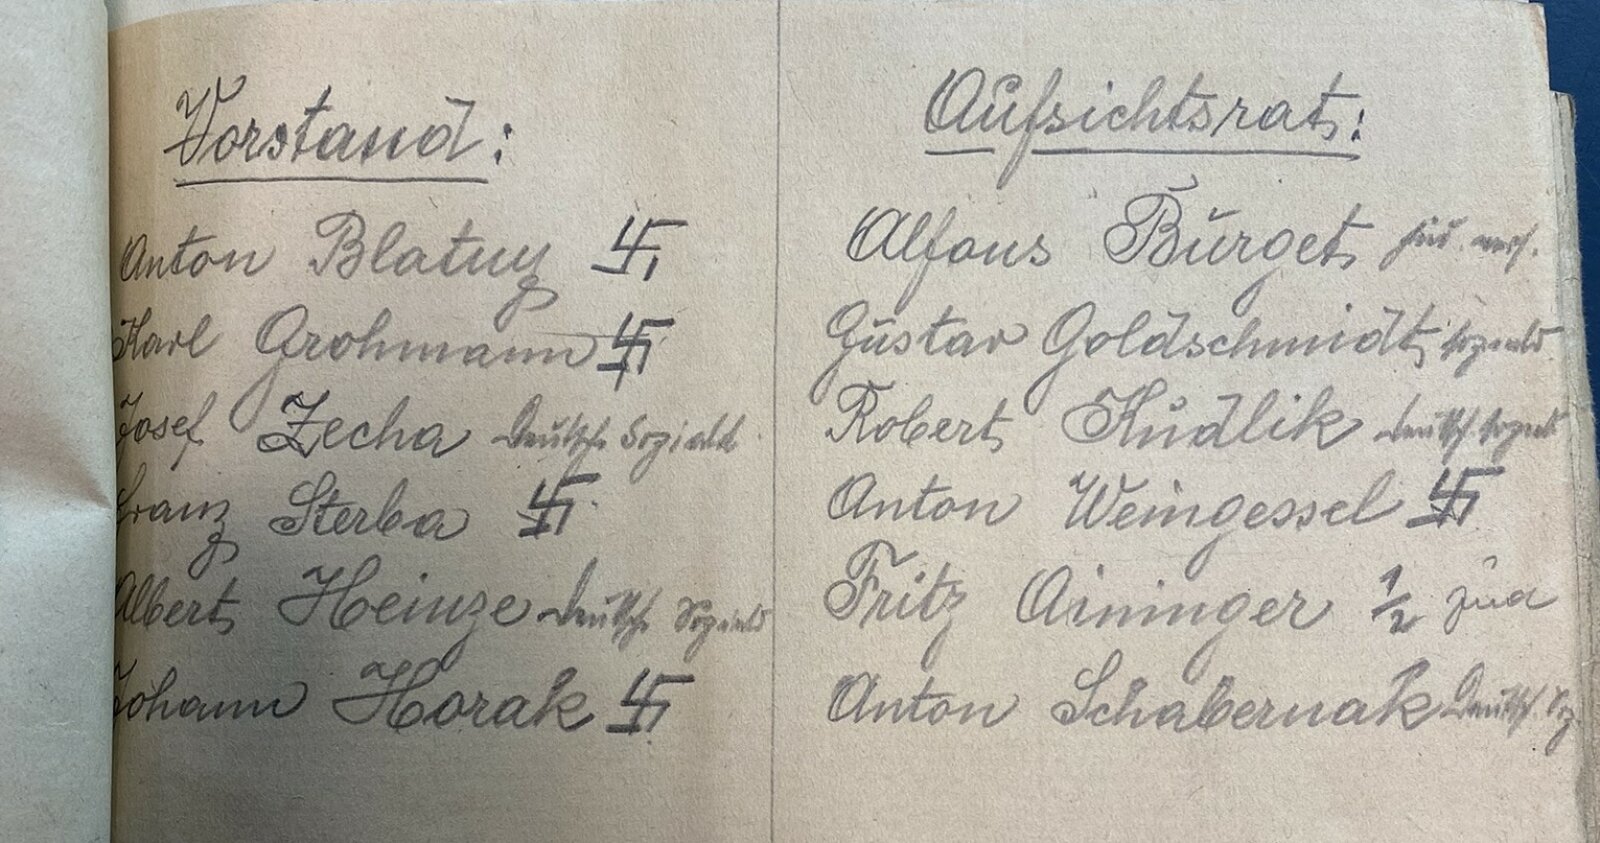 Vorstand:
Anton Blatny 卐
Karl Grohmann 卐
Josef Zecha Deutsche Soziald
Franz Sterba 卐
Albert Heinze Deutsche Soziald
Johann Horak 卐
Aufsichtsrat:
Alfons Burget jüd.
Gustav Goldschmidt Soziald
Robert Kudlik Deutsch. Soziald
Anton Weingessel 卐
Fritz Aininger 1/2
Anton Schabernak Deutsch. Soz